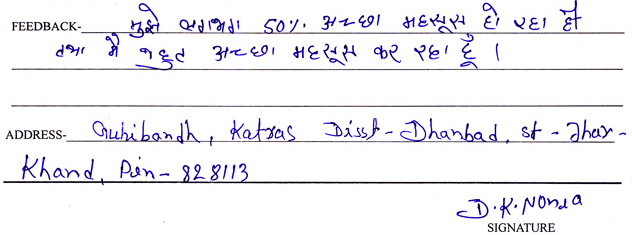 FEEDBACK- मुझे लगभग 50%. अच्छा महसूस हो रहा है
तथा मैं बहुत अच्छा महसूस कर रहा हूँ ।
ADDRESS- Guhibandh, Katras Disst - Dhanbad, st - Jhar-
Khand, Pin - 828113
D.K. Nonia
SIGNATURE